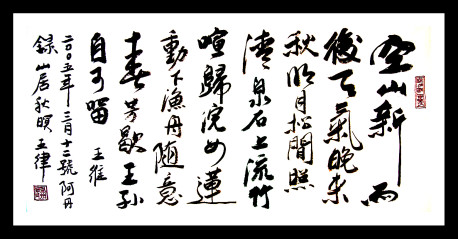 空山新雨
後天氣晚来
秋明月松間照
清泉石上流竹
喧歸浣女蓮
動下漁舟隨意
春芳歇王孫
自可留 王維
二〇〇五年三月十二號阿丹
錄山居秋暝五律